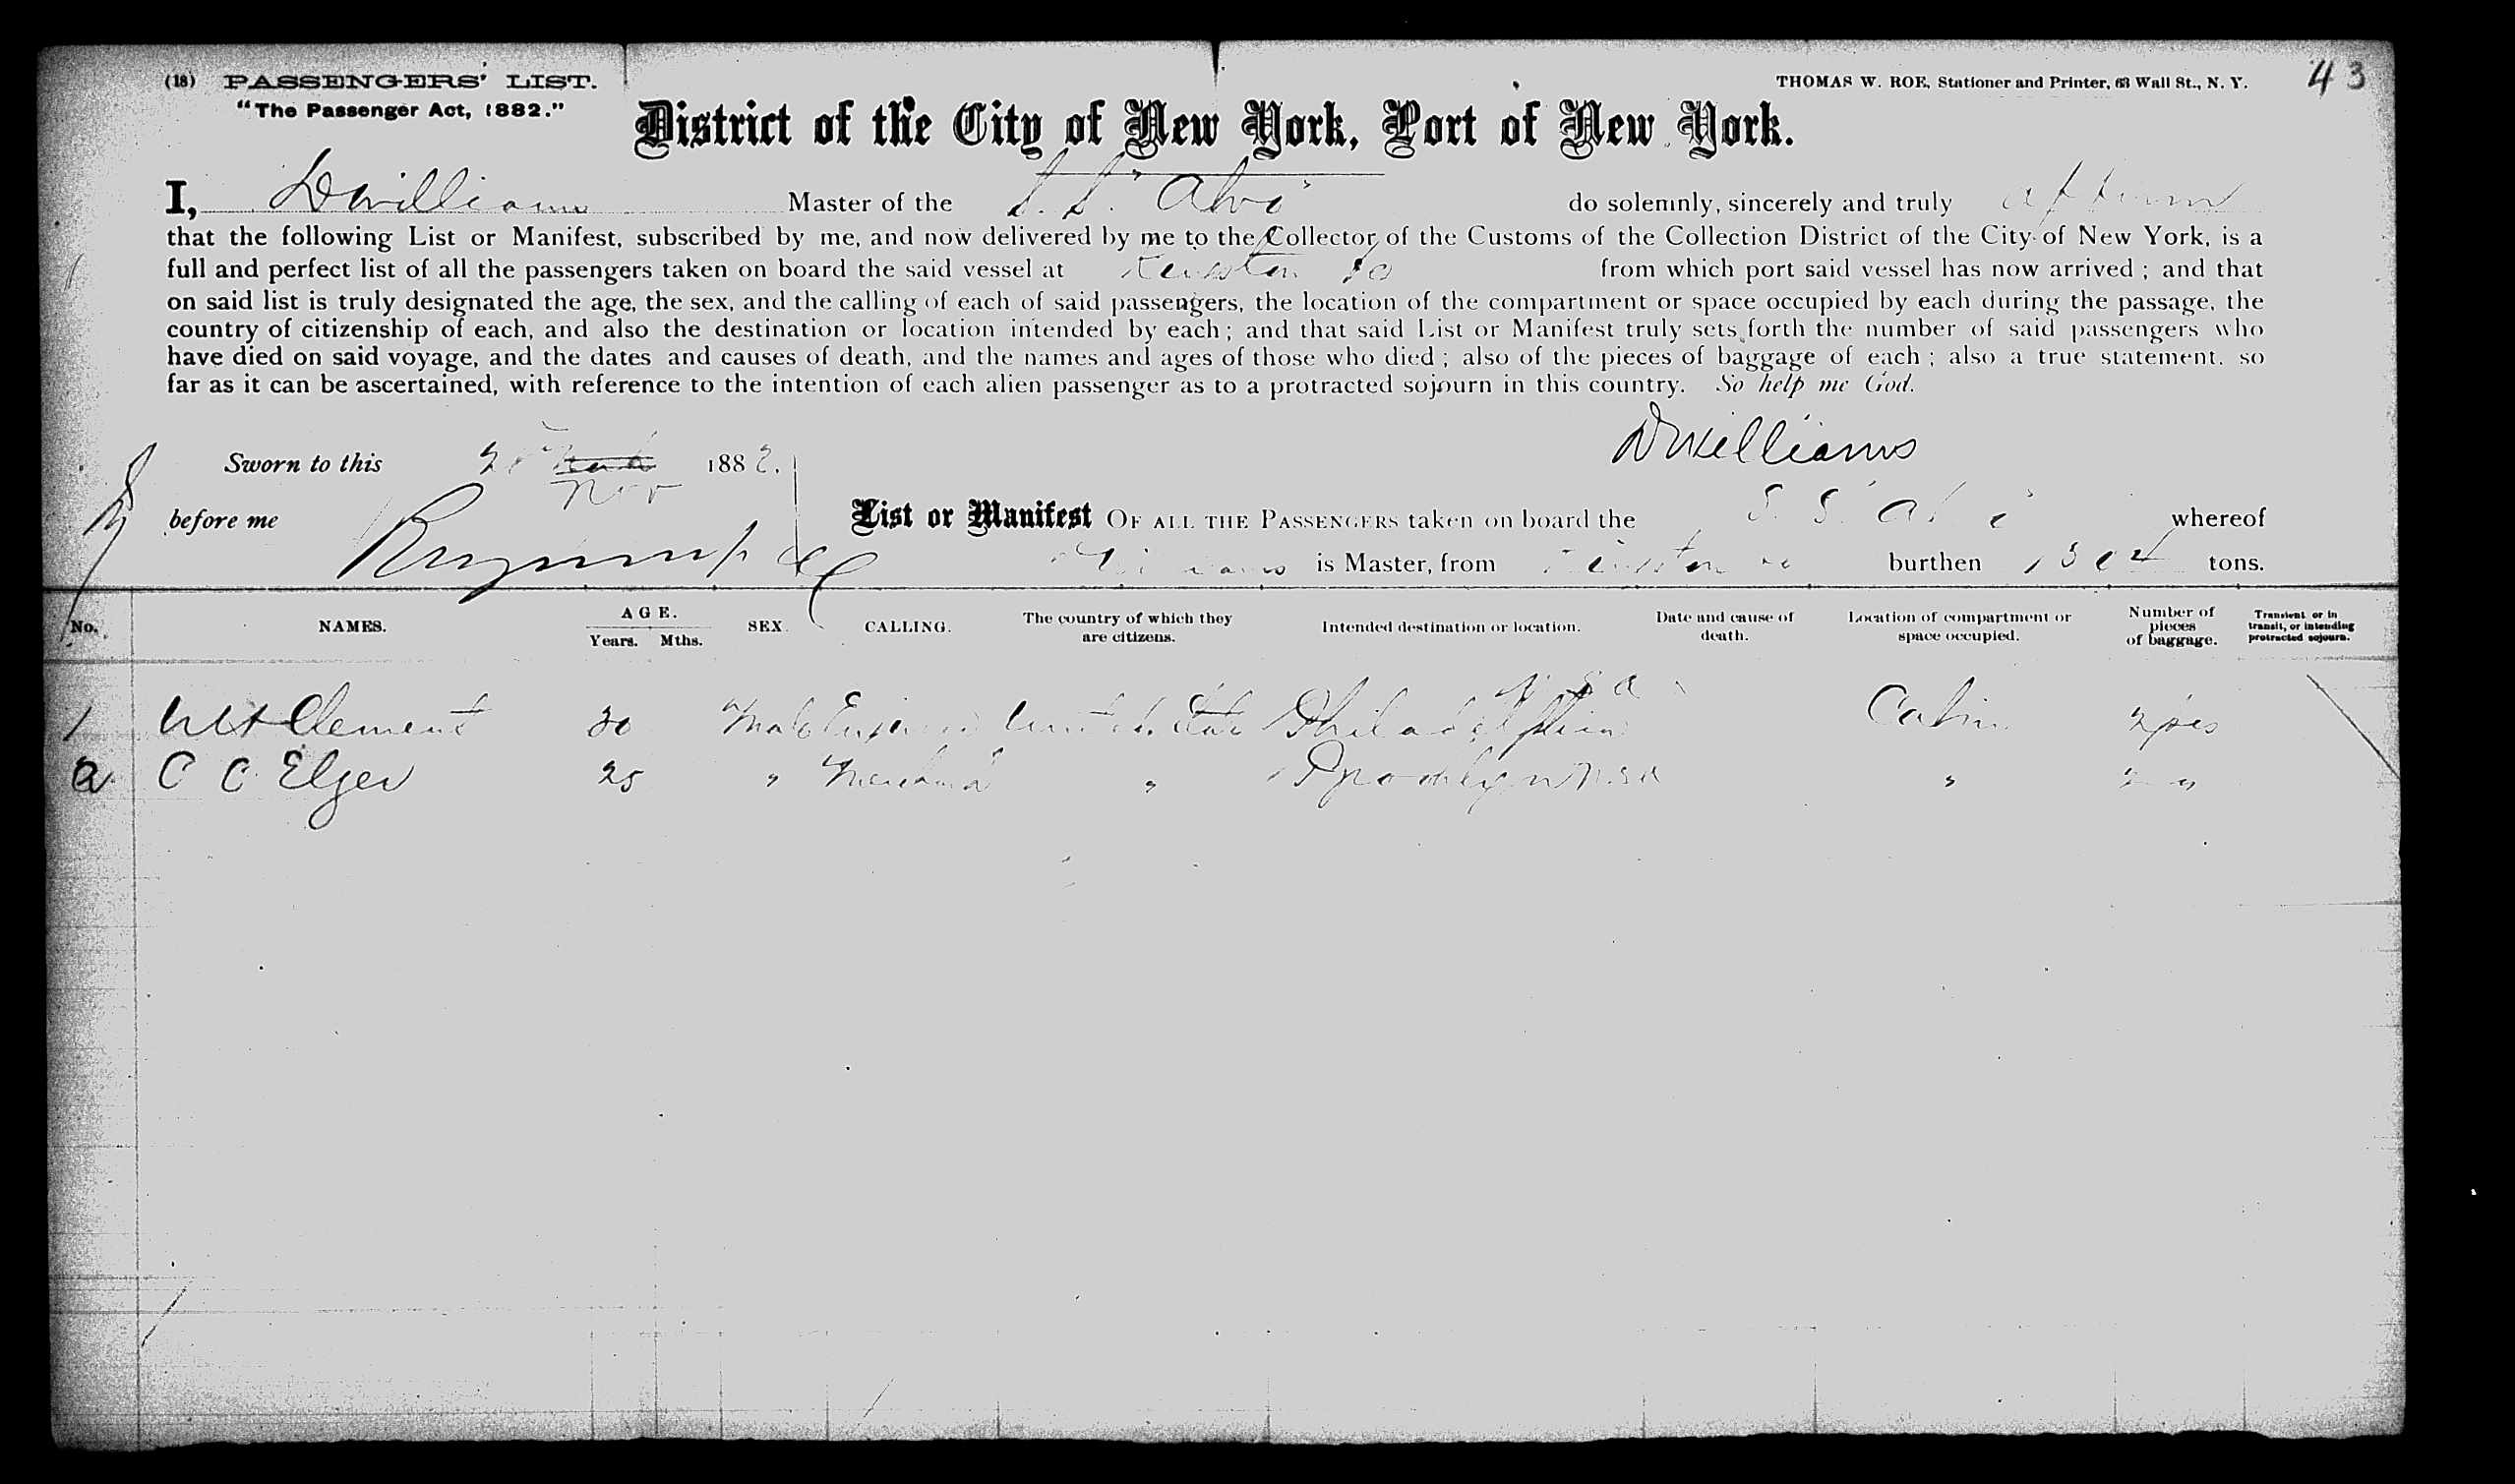 (18) PASSENGERS' LIST.
"The Passenger Act, 1882."
THOMAS W. ROE, Stationer and Printer, 63 Wall St., N. Y.
43
District of the City of New York, Port of New York.
I, D Williams Master of the S. S. "Alvo" do solemnly, sincerely and truly affirm
that the following List or Manifest, subscribed by me, and now delivered by me to the Collector of the Customs of the Collection District of the City of New York, is a
full and perfect list of all the passengers taken on board the said vessel at Kingston Ja from which port said vessel has now arrived; and that
on said list is truly designated the age, the sex, and the calling of each of said passengers, the location of the compartment or space occupied by each during the passage, the
country of citizenship of each, and also the destination or location intended by each; and that said List or Manifest truly sets forth the number of said passengers who
have died on said voyage, and the dates and causes of death, and the names and ages of those who died; also of the pieces of baggage of each; also a true statement, so
far as it can be ascertained, with reference to the intention of each alien passenger as to a protracted sojourn in this country. So help me God.
D Williams
Sworn to this Nov 1882.
before me
List or Manifest OF ALL THE PASSENGERS taken on board the S. S. whereof
Williams is Master, from Kingston Ja burthen tons.
No. NAMES. AGE. Years. Mths. SEX. CALLING. The country of which they are citizens. Intended destination or location. Date and cause of death. Location of compartment or space occupied. Number of pieces of baggage. Transient or in transit, or intending protracted sojourn.
1 Clement 30 Male United States Philadelphia U S A Cabin 2 pcs
2 C C Elger 25 " Merchant " Brooklyn U.S.A " 2 "